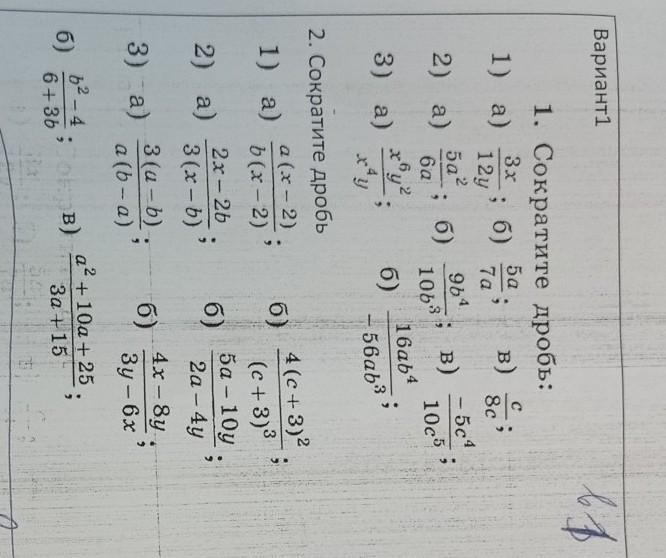 Вариант1
1. Сократите дробь:
1) а) 3x/12y; б) 5a/7a; в) c/8c;
2) а) 5a²/6a; б) 9b⁴/10b³; в) −5c⁴/10c⁵;
3) а) x⁶y²/x⁴y; б) 16ab⁴/−56ab³;
2. Сократите дробь
1) а) a(x−2)/b(x−2); б) 4(c+3)²/(c+3)³;
2) а) 2x−2b/3(x−b); б) 5a−10y/2a−4y;
3) а) 3(a−b)/a(b−a); б) 4x−8y/3y−6x;
б) b²−4/6+3b; в) a²+10a+25/3a+15;